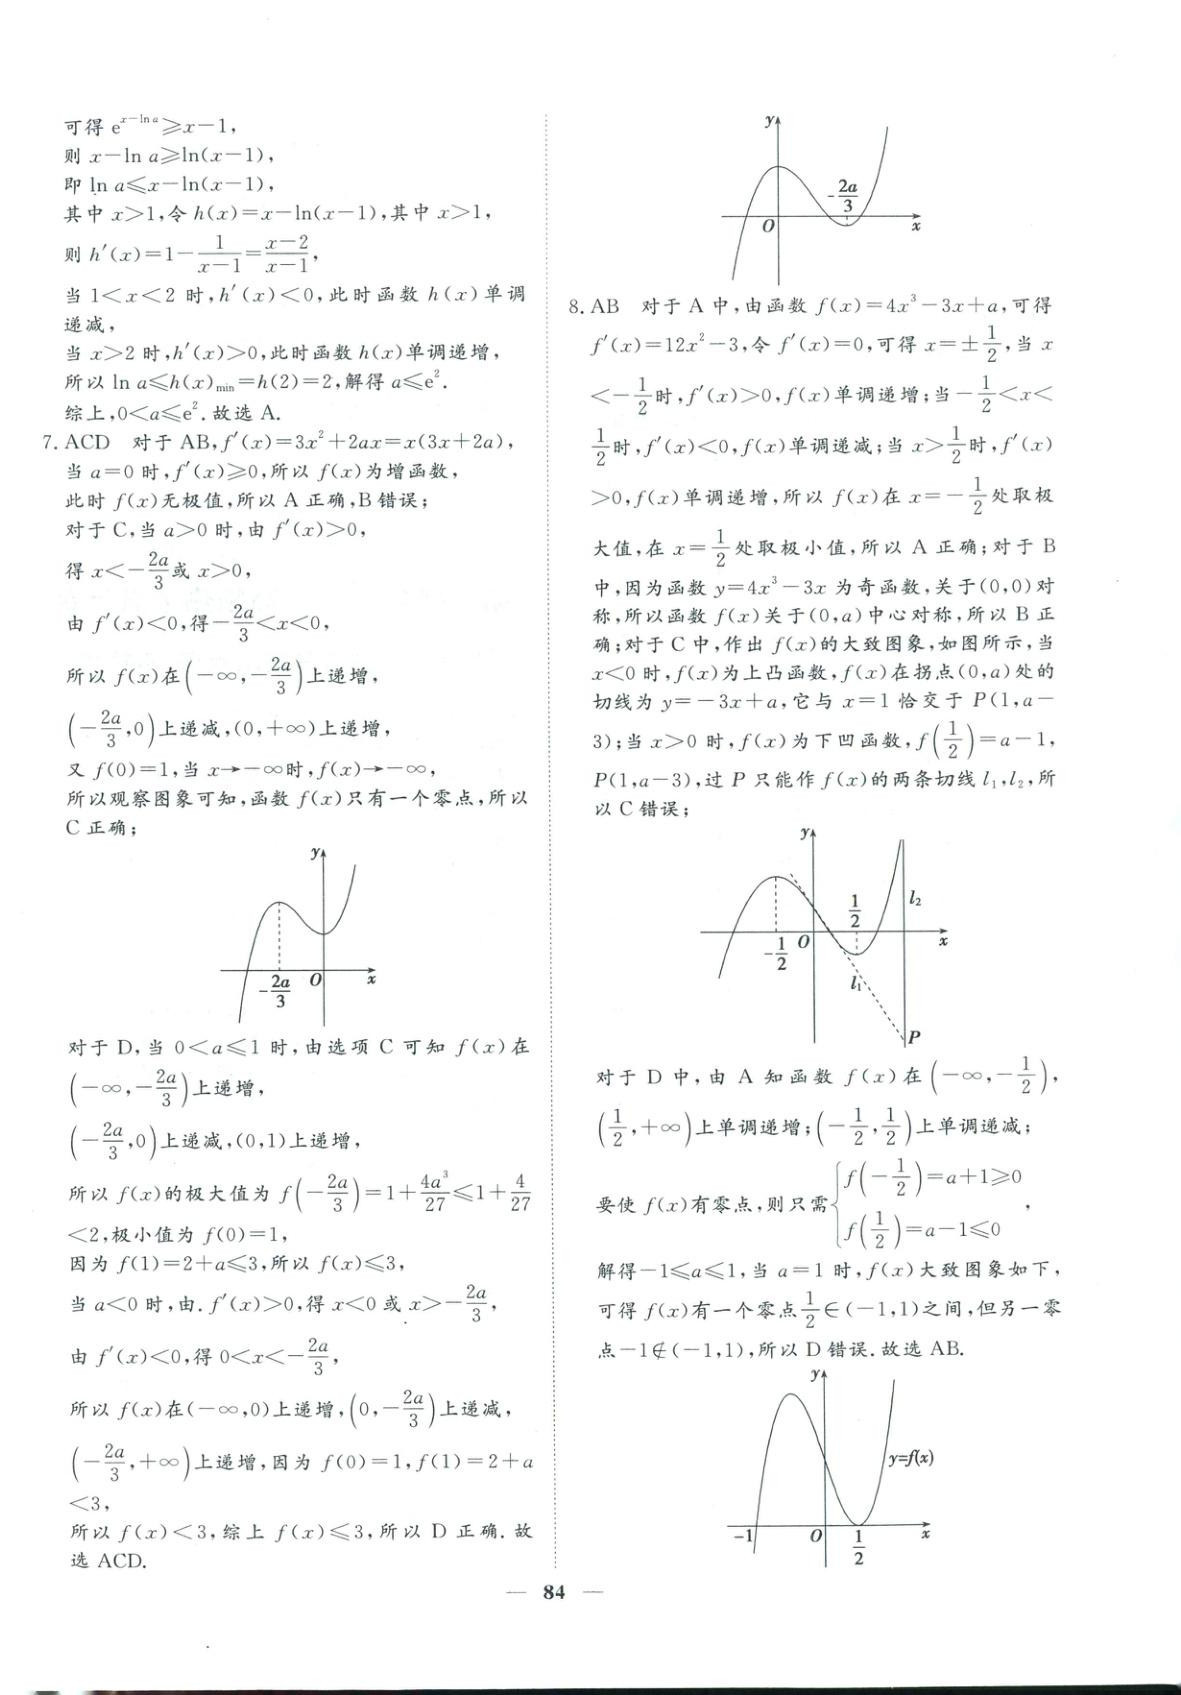 可得 e^{x-ln a}≥x-1,
则 x-ln a≥ln(x-1),
即 ln a≤x-ln(x-1),
其中 x>1,令 h(x)=x-ln(x-1),其中 x>1,
则 h′(x)=1-\frac{1}{x-1}=\frac{x-2}{x-1},
当 1<x<2 时,h′(x)<0,此时函数 h(x)单调
递减,
当 x>2 时,h′(x)>0,此时函数 h(x)单调递增,
所以 ln a≤h(x)_{min}=h(2)=2,解得 a≤e².
综上,0<a≤e².故选 A.
7.ACD 对于 AB,f′(x)=3x²+2ax=x(3x+2a),
当 a=0 时,f′(x)≥0,所以 f(x)为增函数,
此时 f(x)无极值,所以 A 正确,B 错误;
对于 C,当 a>0 时,由 f′(x)>0,
得 x<-\frac{2a}{3}或 x>0,
由 f′(x)<0,得-\frac{2a}{3}<x<0,
所以 f(x)在(-∞,-\frac{2a}{3})上递增,
(-\frac{2a}{3},0)上递减,(0,+∞)上递增,
又 f(0)=1,当 x→-∞时,f(x)→-∞,
所以观察图象可知,函数 f(x)只有一个零点,所以
C 正确;
y
-\frac{2a}{3} O x
对于 D,当 0<a≤1 时,由选项 C 可知 f(x)在
(-∞,-\frac{2a}{3})上递增,
(-\frac{2a}{3},0)上递减,(0,1)上递增,
所以 f(x)的极大值为 f(-\frac{2a}{3})=1+\frac{4a³}{27}≤1+\frac{4}{27}
<2,极小值为 f(0)=1,
因为 f(1)=2+a≤3,所以 f(x)≤3,
当 a<0 时,由.f′(x)>0,得 x<0 或 x>-\frac{2a}{3},
由 f′(x)<0,得 0<x<-\frac{2a}{3},
所以 f(x)在(-∞,0)上递增,(0,-\frac{2a}{3})上递减,
(-\frac{2a}{3},+∞)上递增,因为 f(0)=1,f(1)=2+a
<3,
所以 f(x)<3,综上 f(x)≤3,所以 D 正确.故
选 ACD.
y
-\frac{2a}{3}
O x
8.AB 对于 A 中,由函数 f(x)=4x³-3x+a,可得
f′(x)=12x²-3,令 f′(x)=0,可得 x=±\frac{1}{2},当 x
<-\frac{1}{2}时,f′(x)>0,f(x)单调递增;当-\frac{1}{2}<x<
\frac{1}{2}时,f′(x)<0,f(x)单调递减;当 x>\frac{1}{2}时,f′(x)
>0,f(x)单调递增,所以 f(x)在 x=-\frac{1}{2}处取极
大值,在 x=\frac{1}{2}处取极小值,所以 A 正确;对于 B
中,因为函数 y=4x³-3x 为奇函数,关于(0,0)对
称,所以函数 f(x)关于(0,a)中心对称,所以 B 正
确;对于 C 中,作出 f(x)的大致图象,如图所示,当
x<0 时,f(x)为上凸函数,f(x)在拐点(0,a)处的
切线为 y=-3x+a,它与 x=1 恰交于 P(1,a-
3);当 x>0 时,f(x)为下凹函数,f(\frac{1}{2})=a-1,
P(1,a-3),过 P 只能作 f(x)的两条切线 l₁,l₂,所
以 C 错误;
y
\frac{1}{2} l₂
-\frac{1}{2} O x
l₁
P
对于 D 中,由 A 知函数 f(x)在(-∞,-\frac{1}{2}),
(\frac{1}{2},+∞)上单调递增;(-\frac{1}{2},\frac{1}{2})上单调递减;
要使 f(x)有零点,则只需{f(-\frac{1}{2})=a+1≥0
f(\frac{1}{2})=a-1≤0,
解得-1≤a≤1,当 a=1 时,f(x)大致图象如下,
可得 f(x)有一个零点\frac{1}{2}∈(-1,1)之间,但另一零
点-1∉(-1,1),所以 D 错误.故选 AB.
y
y=f(x)
-1 O \frac{1}{2} x
— 84 —